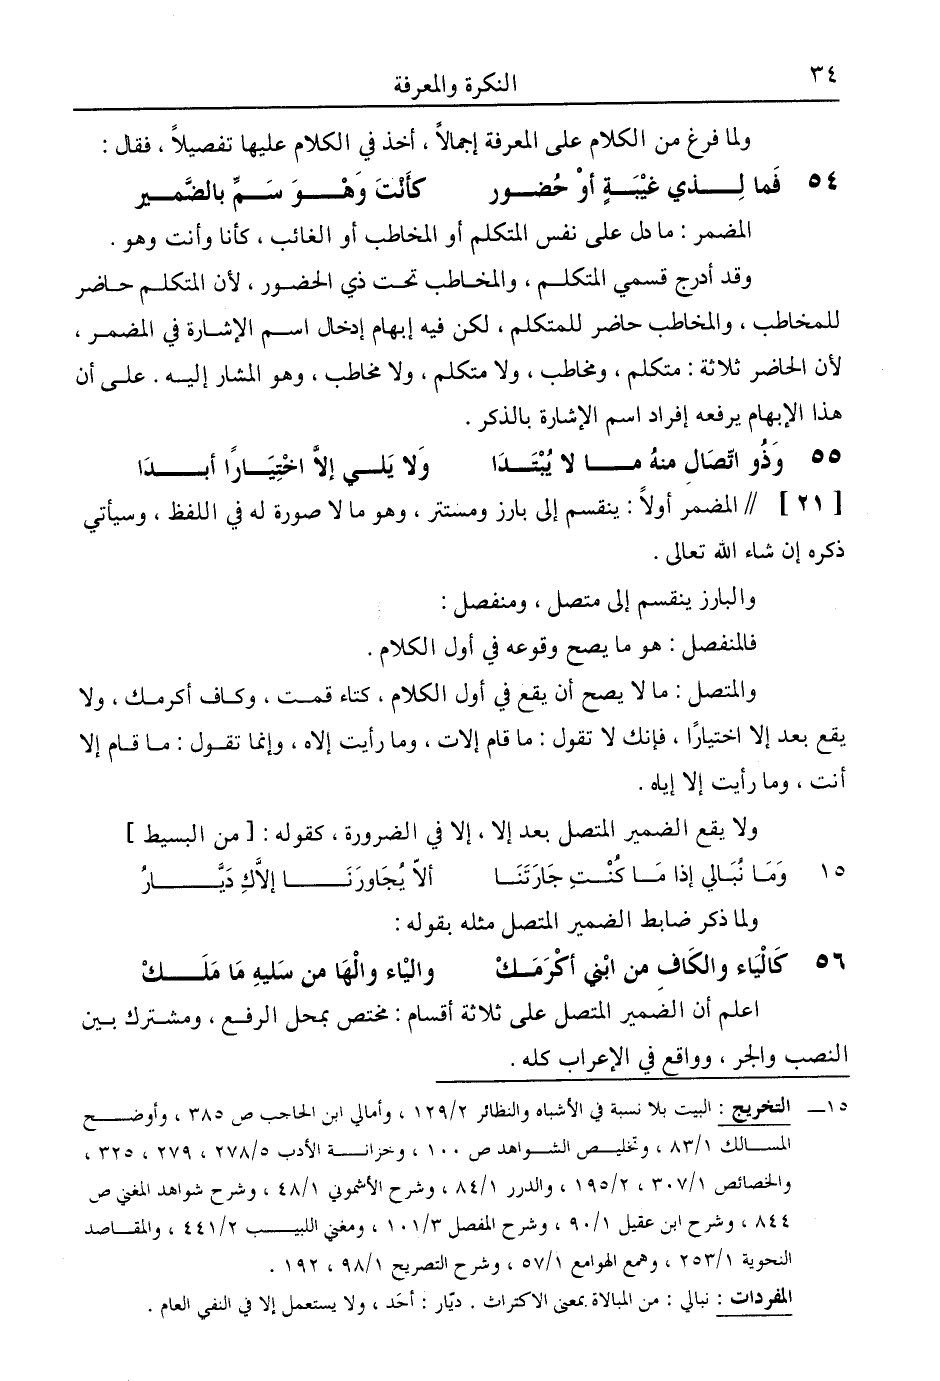 ٣٤
النكرة والمعرفة
ولما فرغ من الكلام على المعرفة إجمالاً ، أخذ في الكلام عليها تفصيلاً ، فقال :
٥٤ فَما لِـذي غيْبَـةٍ أوْ حُضـور كأَنْتَ وَهْـوَ سَـمِّ بالضَّمـير
المضمر : ما دل على نفس المتكلم أو المخاطب أو الغائب ، كأنا وأنت وهو .
وقد أدرج قسمي المتكلم ، والمخاطب تحت ذي الحضور ، لأن المتكلم حاضر
للمخاطب ، والمخاطب حاضر للمتكلم ، لكن فيه إبهام إدخال اسم الإشارة في المضمر ،
لأن الحاضر ثلاثة : متكلم ، ومخاطب ، ولا متكلم ، ولا مخاطب ، وهو المشار إليه . على أن
هذا الإبهام يرفعه إفراد اسم الإشارة بالذكر .
٥٥ وَذُو اتّصَال منهُ مـا لا يُبْتَـدَا وَلا يَلـي إلاَّ اخْتِيَـارًا أبـدَا
[ ٢١ ] // المضمر أولاً : ينقسم إلى بارز ومستتر ، وهو ما لا صورة له في اللفظ ، وسيأتي
ذكره إن شاء الله تعالى .
والبارز ينقسم إلى متصل ، ومنفصل :
فالمنفصل : هو ما يصح وقوعه في أول الكلام .
والمتصل : ما لا يصح أن يقع في أول الكلام ، كتاء قمت ، وكاف أكرمك ، ولا
يقع بعد إلا اختيارًا ، فإنك لا تقول : ما قام إلات ، وما رأيت إلاه ، وإنما تقول : ما قام إلا
أنت ، وما رأيت إلا إياه .
ولا يقع الضمير المتصل بعد إلا ، إلا في الضرورة ، كقوله : [ من البسيط ]
١٥ وَمَـا نُبَـالي إذا مَـا كُنْـتِ جَارَتَنَـا ألاّ يُجَاورَنَـا إلاَّكِ دَيَّـارُ
ولما ذكر ضابط الضمير المتصل مثله بقوله :
٥٦ كَالْيَاء والكَافِ من ابْني أكْرَمَـكْ والياء والْهَا من سَليهِ مَا مَلَـكْ
اعلم أن الضمير المتصل على ثلاثة أقسام : مختص بمحل الرفع ، ومشترك بين
النصب والجر ، وواقع في الإعراب كله .
١٥ـ التخريج : البيت بلا نسبة في الأشباه والنظائر ١٢٩/٢ ، وأمالي ابن الحاجب ص ٣٨٥ ، وأوضح
المسالك ٨٣/١ ، وتخليص الشواهد ص ١٠٠ ، وخزانة الأدب ٢٧٨/٥ ، ٢٧٩ ، ٣٢٥ ،
والخصائص ٣٠٧/١ ، ١٩٥/٢ ، والدرر ٨٤/١ ، وشرح الأشموني ٤٨/١ ، وشرح شواهد المغني ص
٨٤٤ ، وشرح ابن عقيل ٩٠/١ ، وشرح المفصل ١٠١/٣ ، ومغني اللبيب ٤٤١/٢ ، والمقاصد
النحوية ٢٥٣/١ ، وهمع الهوامع ٥٧/١ ، وشرح التصريح ٩٨/١ ، ١٩٢ .
المفردات : نبالي : من المبالاة بمعنى الاكتراث . ديّار : أحَد ، ولا يستعمل إلا في النفي العام .